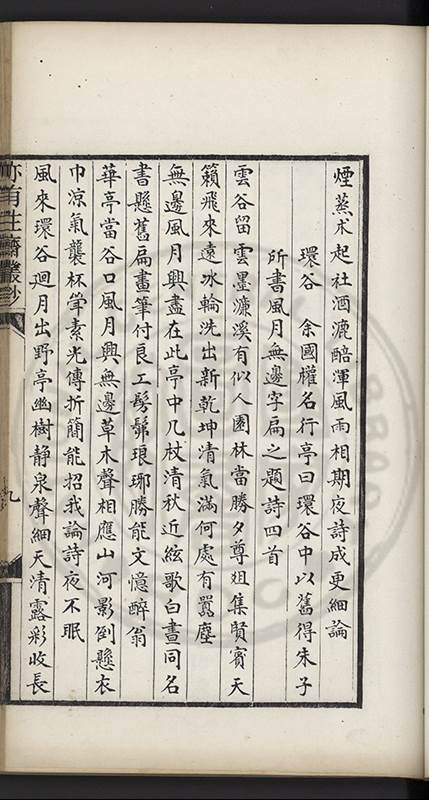 煙蒸朮起社酒漉醅渾風雨相期夜詩成更細論
環谷　余國權名行亭曰環谷中以舊得朱子
所書風月無邊字扁之題詩四首
雲谷留雲墨濂溪有似人園林當勝夕尊俎集賢賓天
籟飛來遠冰輪洗出新乾坤清氣滿何處有囂塵
無邊風月興盡在此亭中几杖清秋近絃歌白晝同名
書懸舊扁畫筆付良工髣髴琅琊勝能文憶醉翁
華亭當谷口風月興無邊草木聲相應山河影倒懸衣
巾涼氣襲杯斝素光傳折簡能招我論詩夜不眠
風來環谷迴月出野亭幽樹静泉聲細天清露彩收長
亦有生齋叢鈔
九